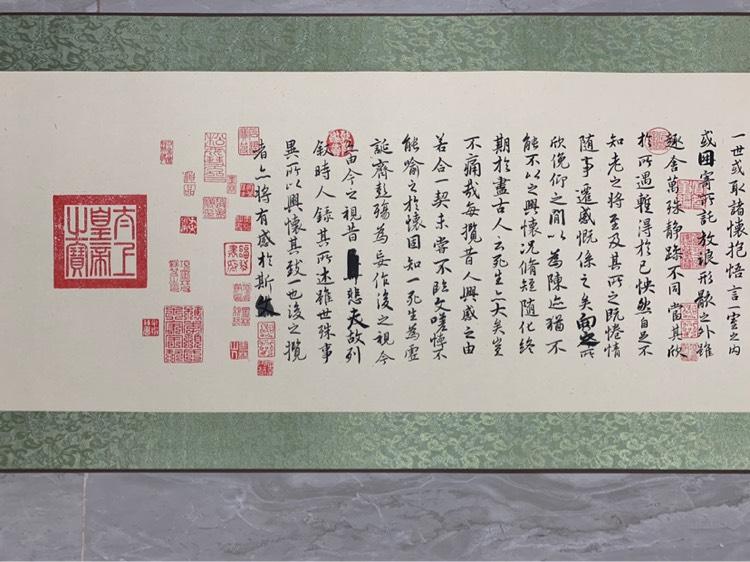 一世或取諸懷抱悟言一室之內
或因寄所託放浪形骸之外雖
趣舍萬殊靜躁不同當其欣
於所遇輙得於己怏然自足不
知老之將至及其所之既惓情
隨事遷感慨係之矣向之所
欣俛仰之間以為陳迹猶不
能不以之興懷況脩短隨化終
期於盡古人云死生亦大矣豈
不痛哉每攬昔人興感之由
若合一契未嘗不臨文嗟悼不
能喻之於懷固知一死生為虛
誕齊彭殤為妄作後之視今
亦由今之視昔悲夫故列
敘時人錄其所述雖世殊事
異所以興懷其致一也後之攬
者亦將有感於斯文
太上皇帝之寶